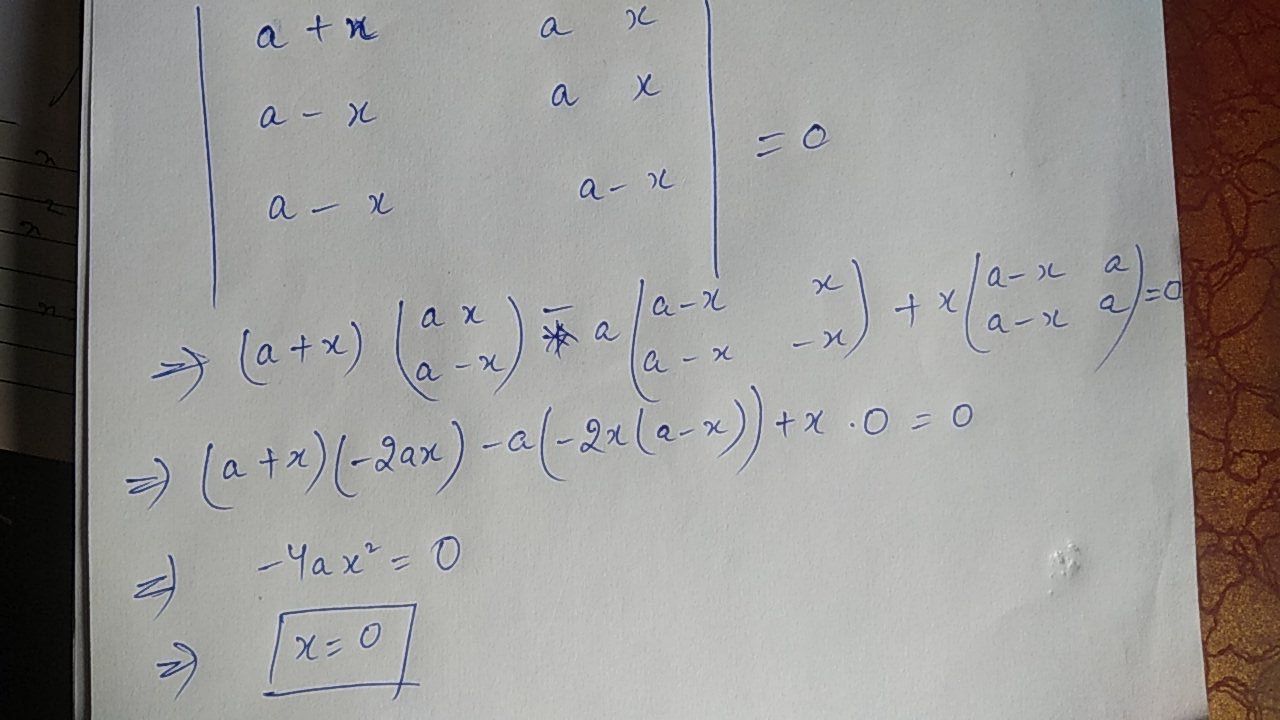 | a + x a x |
| a - x a x | = 0
| a - x a - x |
⇒ (a + x) (a x) - a (a - x x) + x (a - x a) = 0
(a - x) (a - x - x) (a - x a)
⇒ (a + x)(-2ax) - a(-2x(a - x)) + x · 0 = 0
⇒ -4ax² = 0
⇒ x = 0